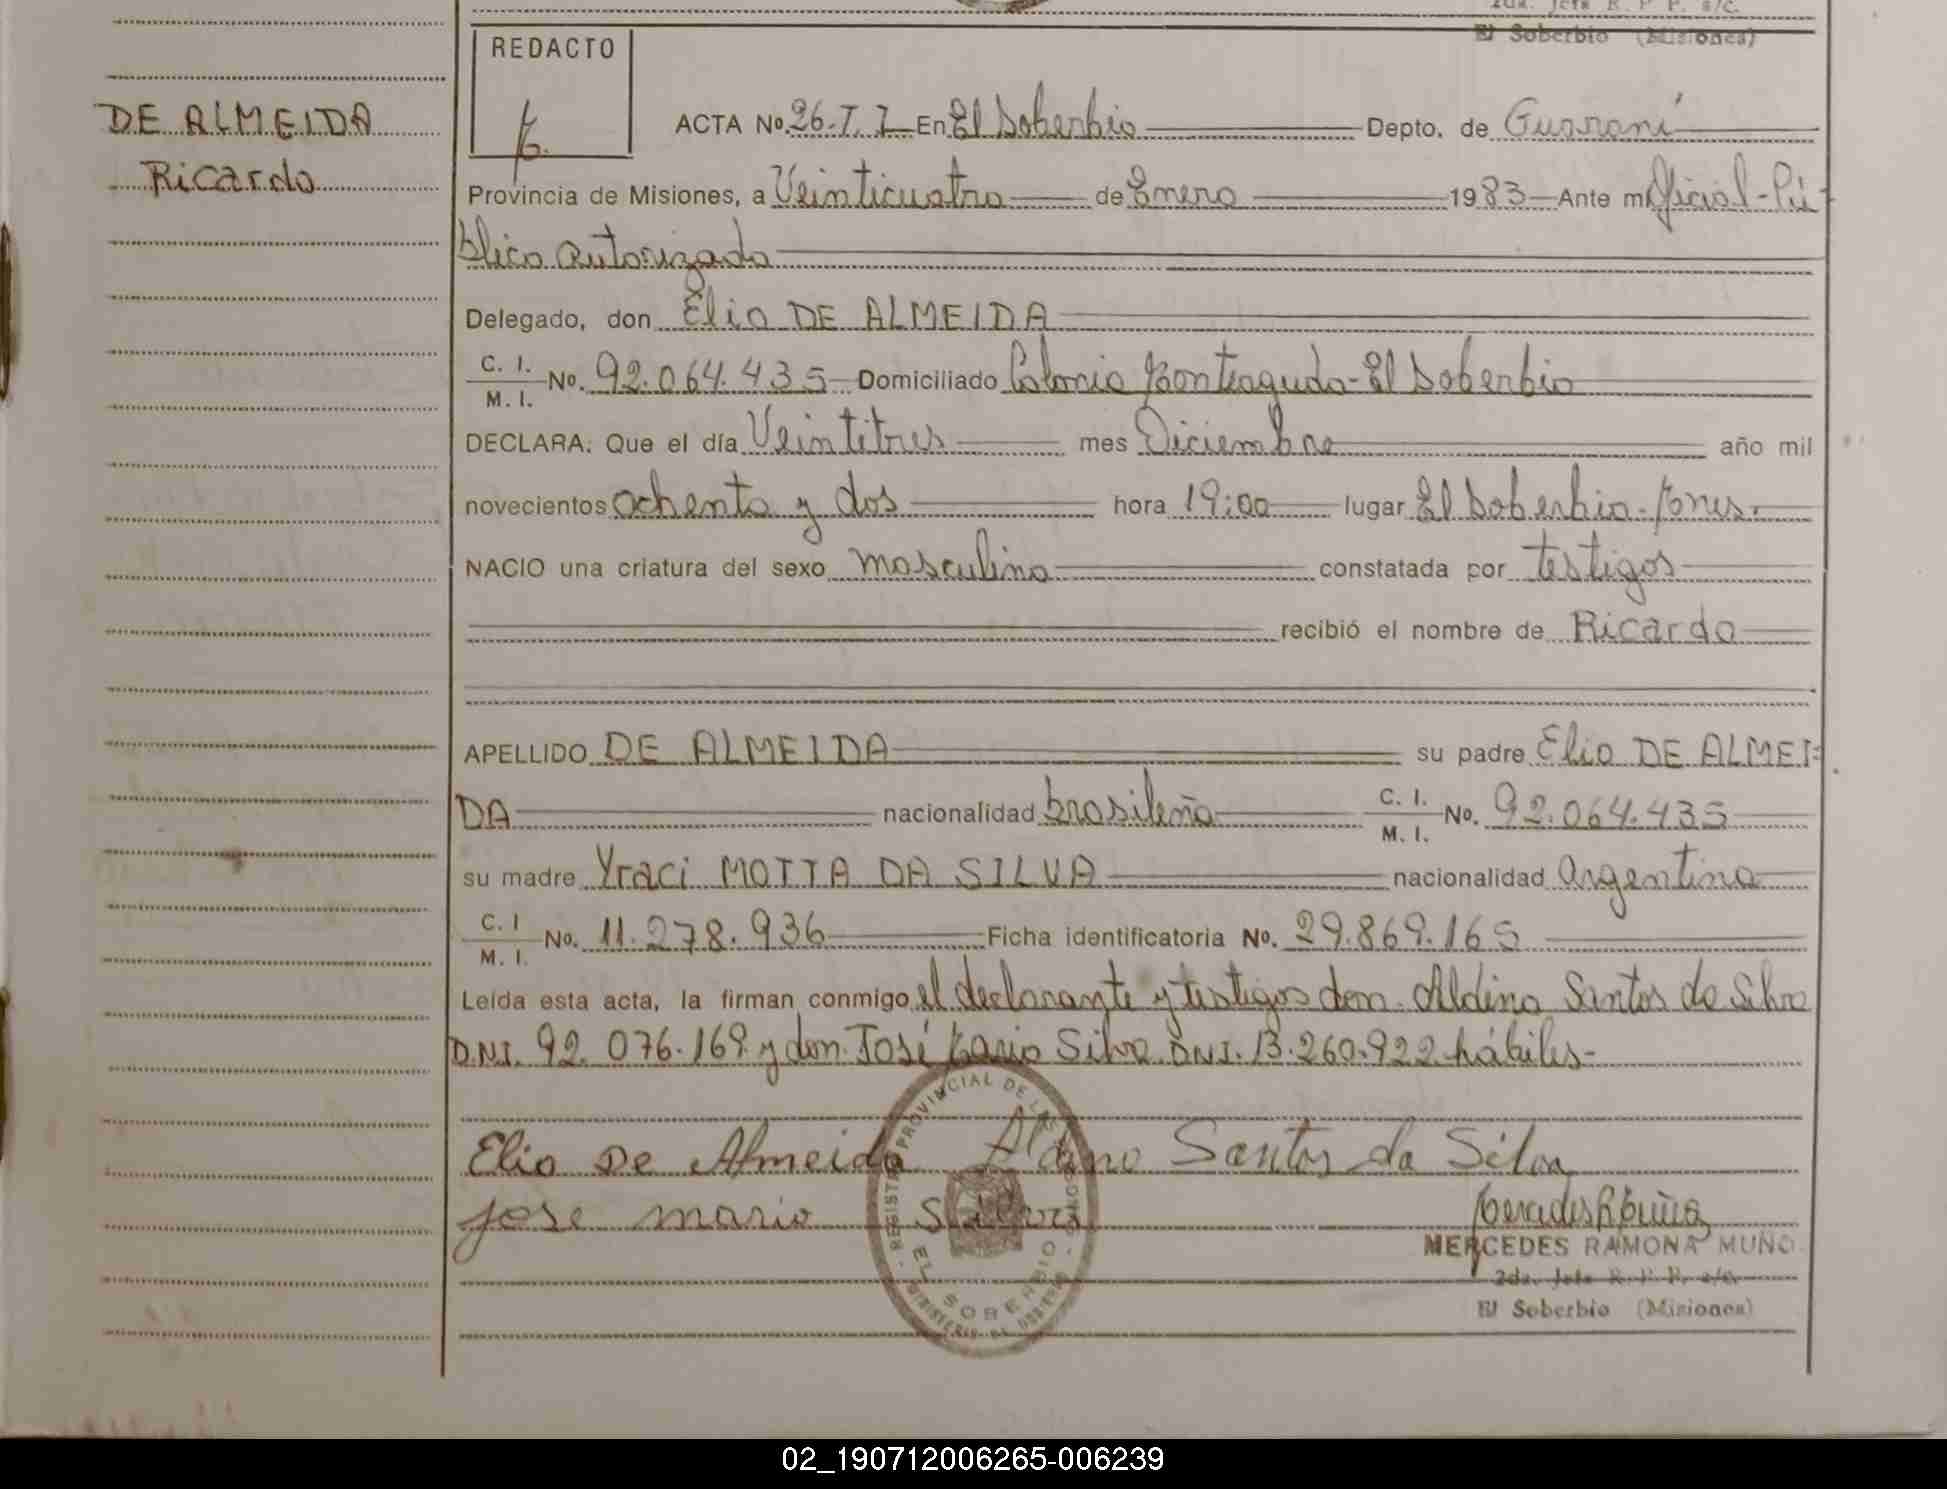 2da. Jefe R. P. P. s/c.
El Soberbio (Misiones)
REDACTO
DE ALMEIDA
Ricardo
ACTA No. 26-T. 1 En El Soberbio Depto. de Guaraní
Provincia de Misiones, a Veinticuatro de Enero 1983 Ante mi Oficial-Pú-
blico Autorizado
Delegado, don Elio DE ALMEIDA
C. I. M. I. No. 92.064.435 Domiciliado Colonia Monteagudo-El Soberbio
DECLARA: Que el día Veintitres mes Diciembre año mil
novecientos ochenta y dos hora 19:00 lugar El Soberbio-Mnes.
NACIO una criatura del sexo masculino constatada por testigos
recibió el nombre de Ricardo
APELLIDO DE ALMEIDA su padre Elio DE ALMEI-
DA nacionalidad brasileña C. I. M. I. No. 92.064.435
su madre Yraci MOTTA DA SILVA nacionalidad Argentina
C. I M. I. No. 11.278.936 Ficha identificatoria No. 29.869.165
Leída esta acta, la firman conmigo el declarante y testigos don Aldino Santos da Silva
D.N.I. 92.076.169 y don José Mario Silva D.N.I. 13.260.922 hábiles-
Elio De Almeida Aldino Santos da Silva
Jose mario Silva
REGISTRO PROVINCIAL DE LAS PERSONAS
EL SOBERBIO
MINISTERIO DE GOBIERNO
MERCEDES RAMONA MUÑO
2da. Jefe R. P. P. s/c.
El Soberbio (Misiones)
02_190712006265-006239